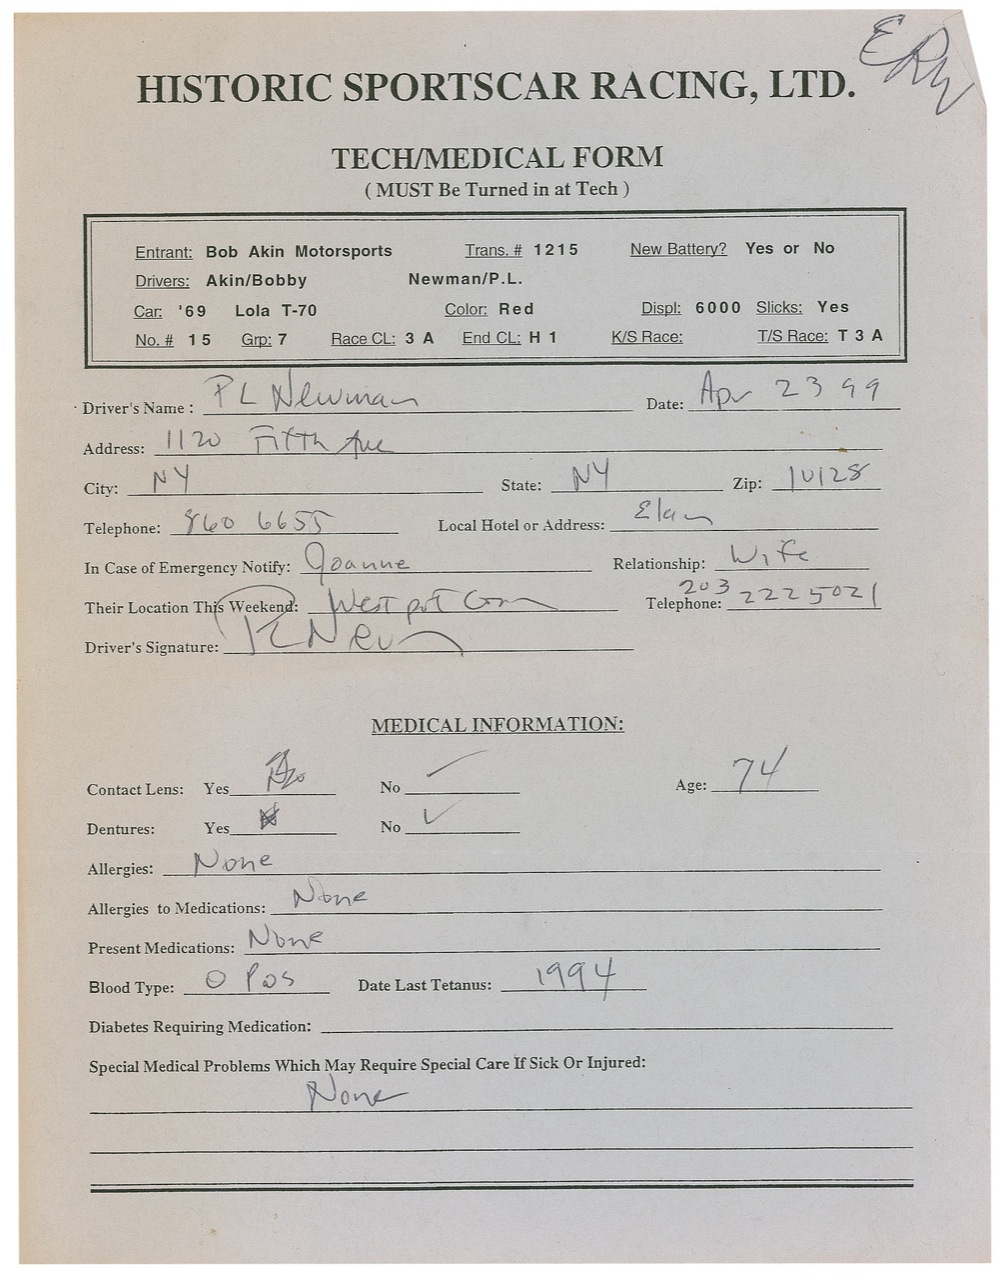 HISTORIC SPORTSCAR RACING, LTD.
TECH/MEDICAL FORM
( MUST Be Turned in at Tech )
Entrant: Bob Akin Motorsports Trans. # 1215 New Battery? Yes or No
Drivers: Akin/Bobby Newman/P.L.
Car: '69 Lola T-70 Color: Red Displ: 6000 Slicks: Yes
No. # 15 Grp: 7 Race CL: 3 A End CL: H 1 K/S Race: T/S Race: T 3 A
Driver's Name : PL Newman Date: Apr 23 99
Address: 1120 Fifth Ave
City: NY State: NY Zip: 10128
Telephone: 860 6655 Local Hotel or Address: Elan
In Case of Emergency Notify: Joanne Relationship: Wife
Their Location This Weekend: Westport Conn Telephone: 203 2225021
Driver's Signature: PL Newman
MEDICAL INFORMATION:
Contact Lens: Yes No ✓ Age: 74
Dentures: Yes No ✓
Allergies: None
Allergies to Medications: None
Present Medications: None
Blood Type: O Pos Date Last Tetanus: 1994
Diabetes Requiring Medication:
Special Medical Problems Which May Require Special Care If Sick Or Injured:
None